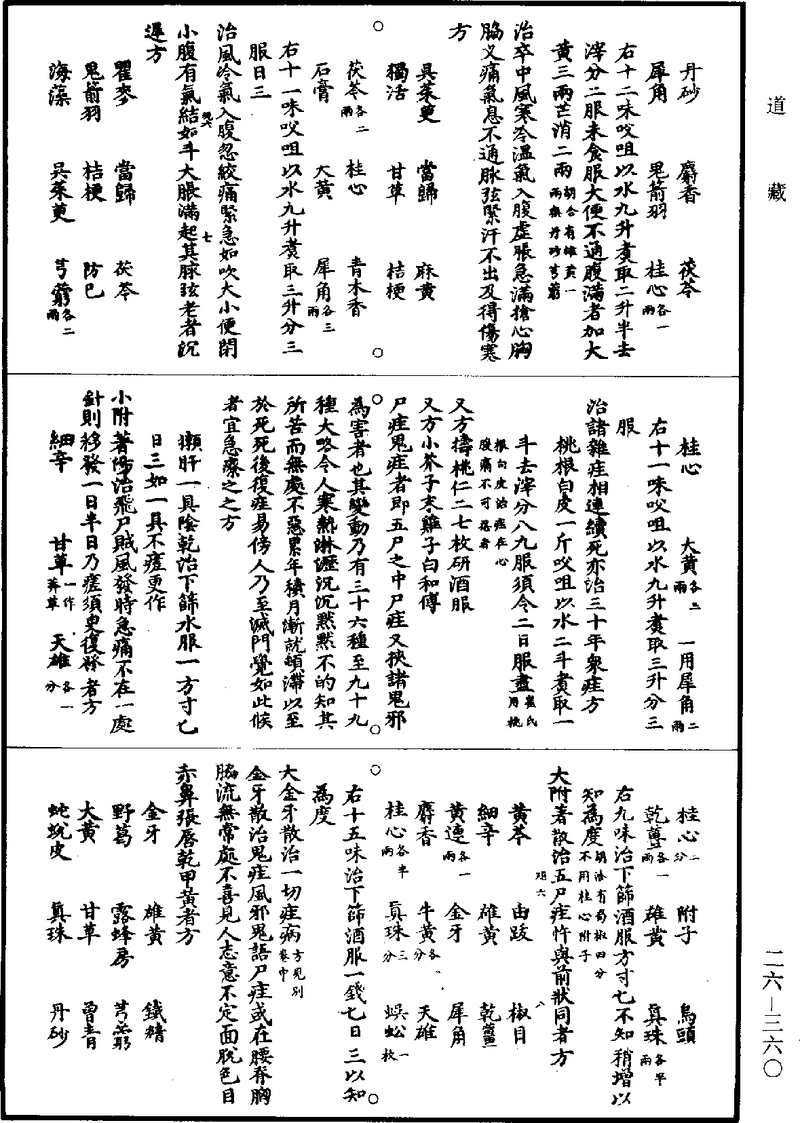 道藏
丹砂 麝香 茯苓
犀角 鬼箭羽 桂心各一兩
右十二味㕮咀以水九升煑取二升半去
滓分二服未食服大便不通腹滿者加大
黃三兩芒消二兩胡洽有雄黃一兩無丹砂芎藭
治卒中風寒冷溫氣入腹虛脹急滿搶心胸
脇义痛氣息不通脉弦緊汗不出及得傷寒
方
吳茱萸 當歸 麻黃
獨活 甘草 桔梗
茯苓各二兩 桂心 青木香
石膏 大黃 犀角各三兩
右十一味㕮咀以水九升煑取三升分三
服日三
治風冷氣入腹忽絞痛緊急如吹大小便閉
小腹有氣結如斗大脹滿起其脉弦老者沉
遲方
瞿麥 當歸 茯苓
鬼箭羽 桔梗 防巳
海藻 吳茱萸 芎藭各二兩
桂心 大黃各三兩 一用犀角二兩
右十一味㕮咀以水九升煑取三升分三
服
治諸雜疰相連續死亦治三十年衆疰方
桃根白皮一斤㕮咀以水二斗煑取一
斗去滓分八九服須令二日服盡崔氏用桃
根白皮治疰在心腹痛不可忍者
又方擣桃仁二七枚研酒服
又方小芥子末雞子白和傅
尸疰鬼疰者即五尸之中尸疰又挾諸鬼邪
為害者也其變動乃有三十六種至九十九
種大略令人寒熱淋瀝沉沉默默不的知其
所苦而無處不惡累年積月漸就頓滯以至
於死死後復疰易傍人乃至滅門覺如此候
者宜急療之之方
獺肝一具陰乾治下篩水服一方寸匕
日三如一具不瘥更作
小附著散治飛尸賊風發時急痛不在一處
針則移發一日半日乃瘥須臾復發者方
細辛 甘草一作莽草 天雄各一分
桂心二分 附子 烏頭
乾薑各一兩 雄黃 真珠各半兩
右九味治下篩酒服方寸匕不知稍增以
知為度胡洽有蜀椒四分不用桂心附子
大附著散治五尸疰忤與前狀同者方
黃芩 由跋 椒目
細辛 雄黃 乾薑
黃連各一兩 金牙 犀角
麝香 牛黃各一分 天雄
桂心各半兩 真珠三分 蜈蚣一枚
右十五味治下篩酒服一錢匕日三以知
為度
大金牙散治一切疰病方見別卷中
金牙散治鬼疰風邪鬼語尸疰或在腰脊胸
脇流無常處不喜見人志意不定面脫色目
赤鼻張唇乾甲黃者方
金牙 雄黃 鐵精
野葛 露蜂房 芎藭
大黃 甘草 曾青
蛇蛻皮 真珠 丹砂
二六—三六〇